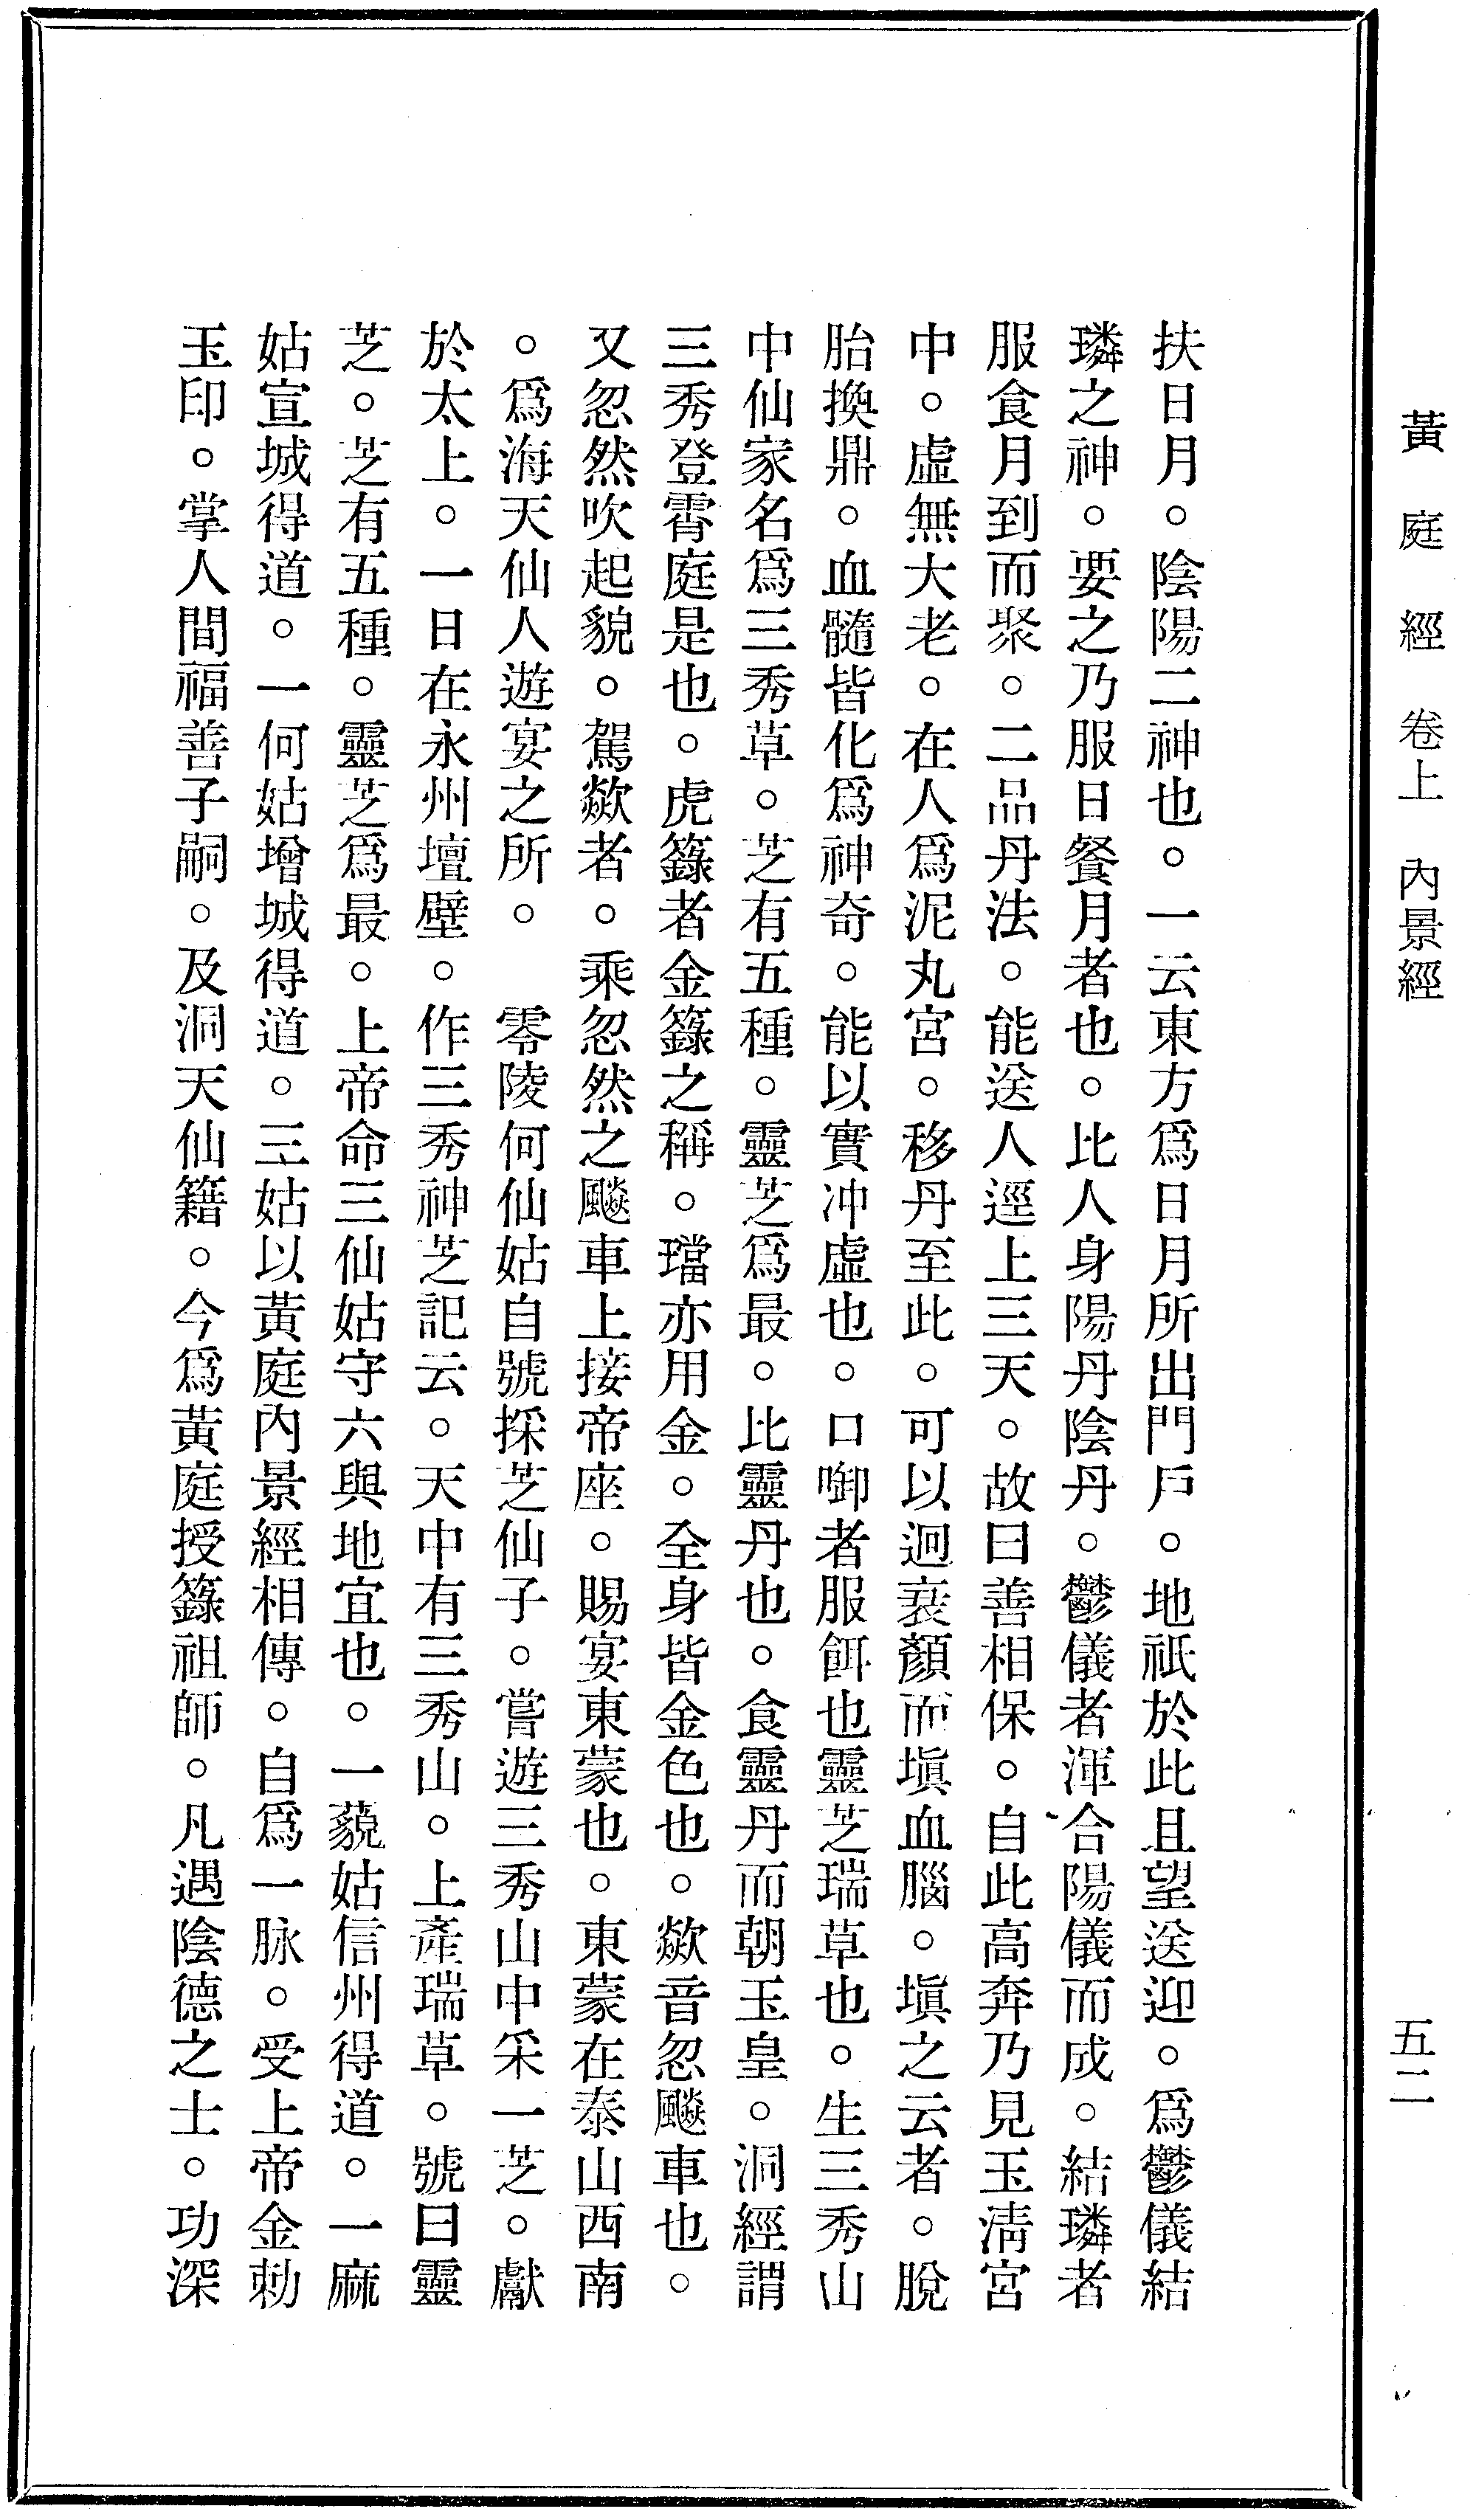 黃庭經 卷上 內景經
五二
扶日月。陰陽二神也。一云東方爲日月所出門戶。地祇於此且望送迎。爲鬱儀結
璘之神。要之乃服日餐月者也。比人身陽丹陰丹。鬱儀者渾合陽儀而成。結璘者
服食月到而聚。二品丹法。能送人逕上三天。故曰善相保。自此高奔乃見玉清宮
中。虛無大老。在人爲泥丸宮。移丹至此。可以迴衰顏而塡血腦。塡之云者。脫
胎換鼎。血髓皆化爲神奇。能以實冲虛也。口啣者服餌也靈芝瑞草也。生三秀山
中仙家名爲三秀草。芝有五種。靈芝爲最。比靈丹也。食靈丹而朝玉皇。洞經謂
三秀登霄庭是也。虎籙者金籙之稱。璫亦用金。全身皆金色也。歘音忽飈車也。
又忽然吹起貌。駕歘者。乘忽然之飈車上接帝座。賜宴東蒙也。東蒙在泰山西南
。爲海天仙人遊宴之所。 零陵何仙姑自號採芝仙子。嘗遊三秀山中采一芝。獻
於太上。一日在永州壇壁。作三秀神芝記云。天中有三秀山。上產瑞草。號曰靈
芝。芝有五種。靈芝爲最。上帝命三仙姑守六與地宜也。一藐姑信州得道。一麻
姑宣城得道。一何姑增城得道。三姑以黃庭內景經相傳。自爲一脉。受上帝金勅
玉印。掌人間福善子嗣。及洞天仙籍。今爲黃庭授籙祖師。凡遇陰德之士。功深